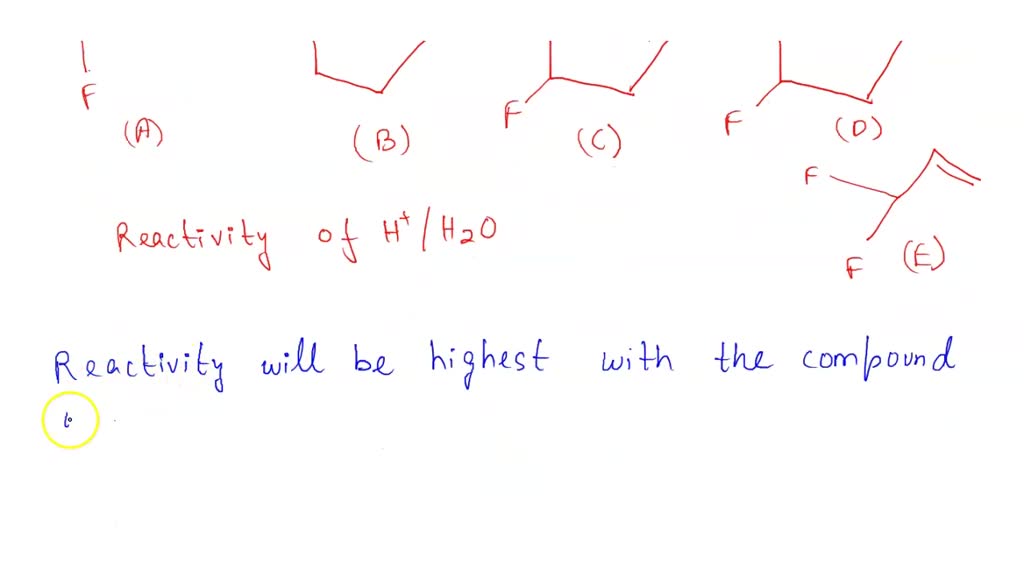 F
(A)
(B)
F
(C)
F
(D)
F
F
(E)
Reactivity of H+/H2O
Reactivity will be highest with the compound